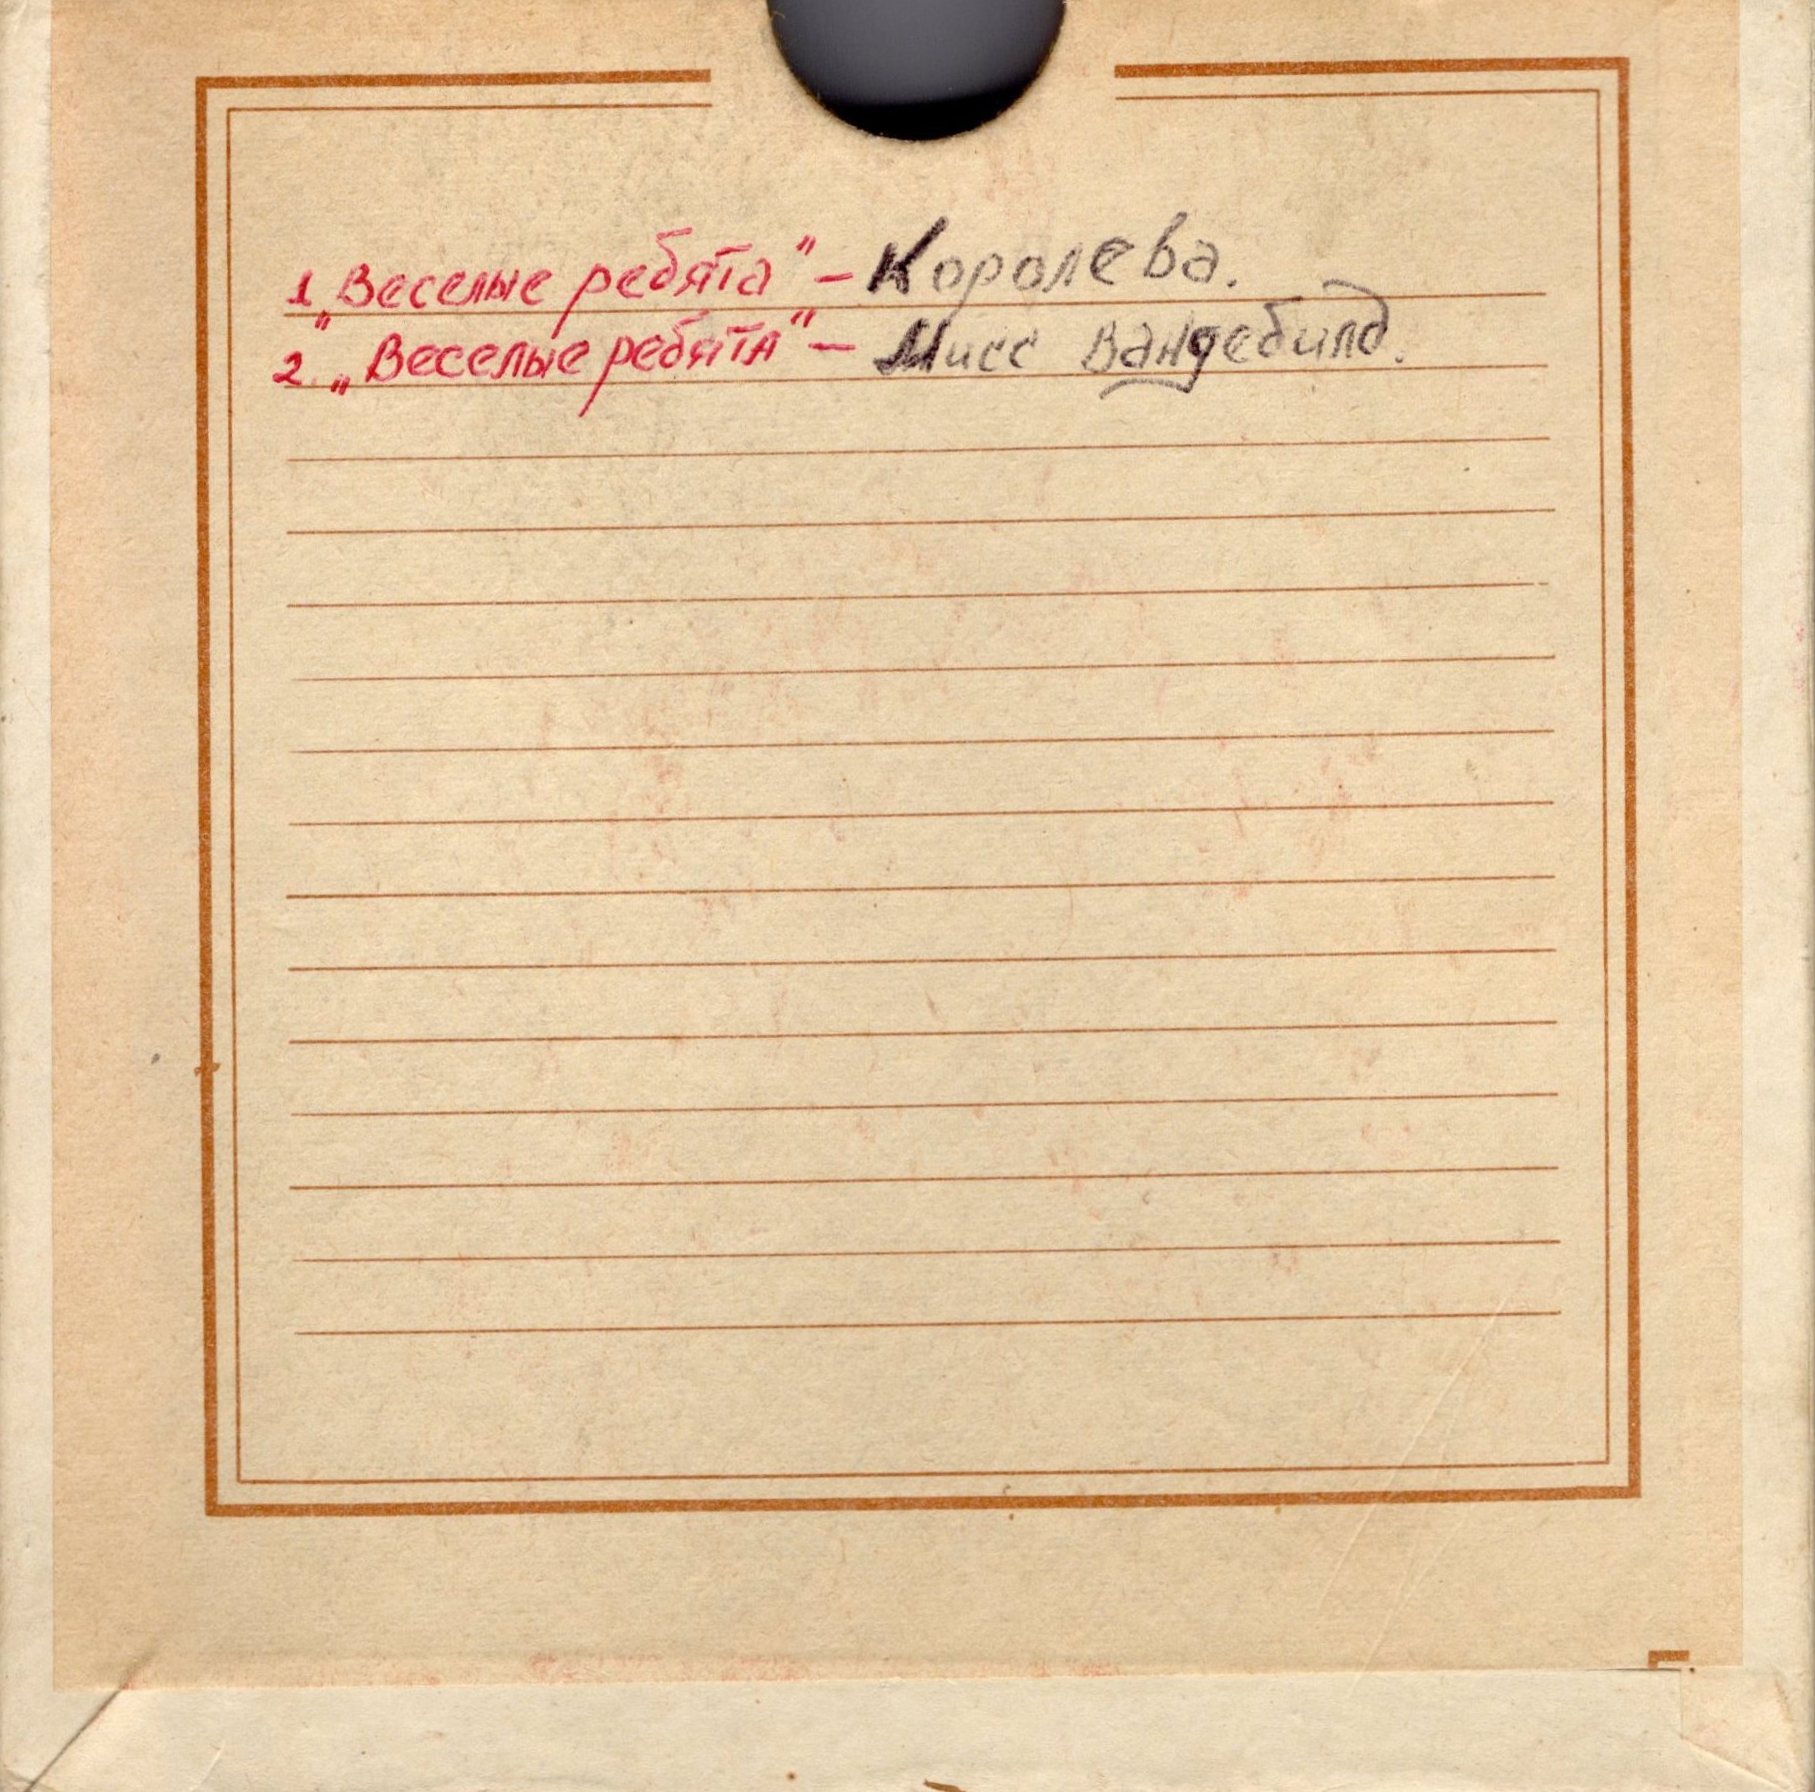 1. „Веселые ребята" – Королева.
2. „Веселые ребята" – Мисс Вандебилд.